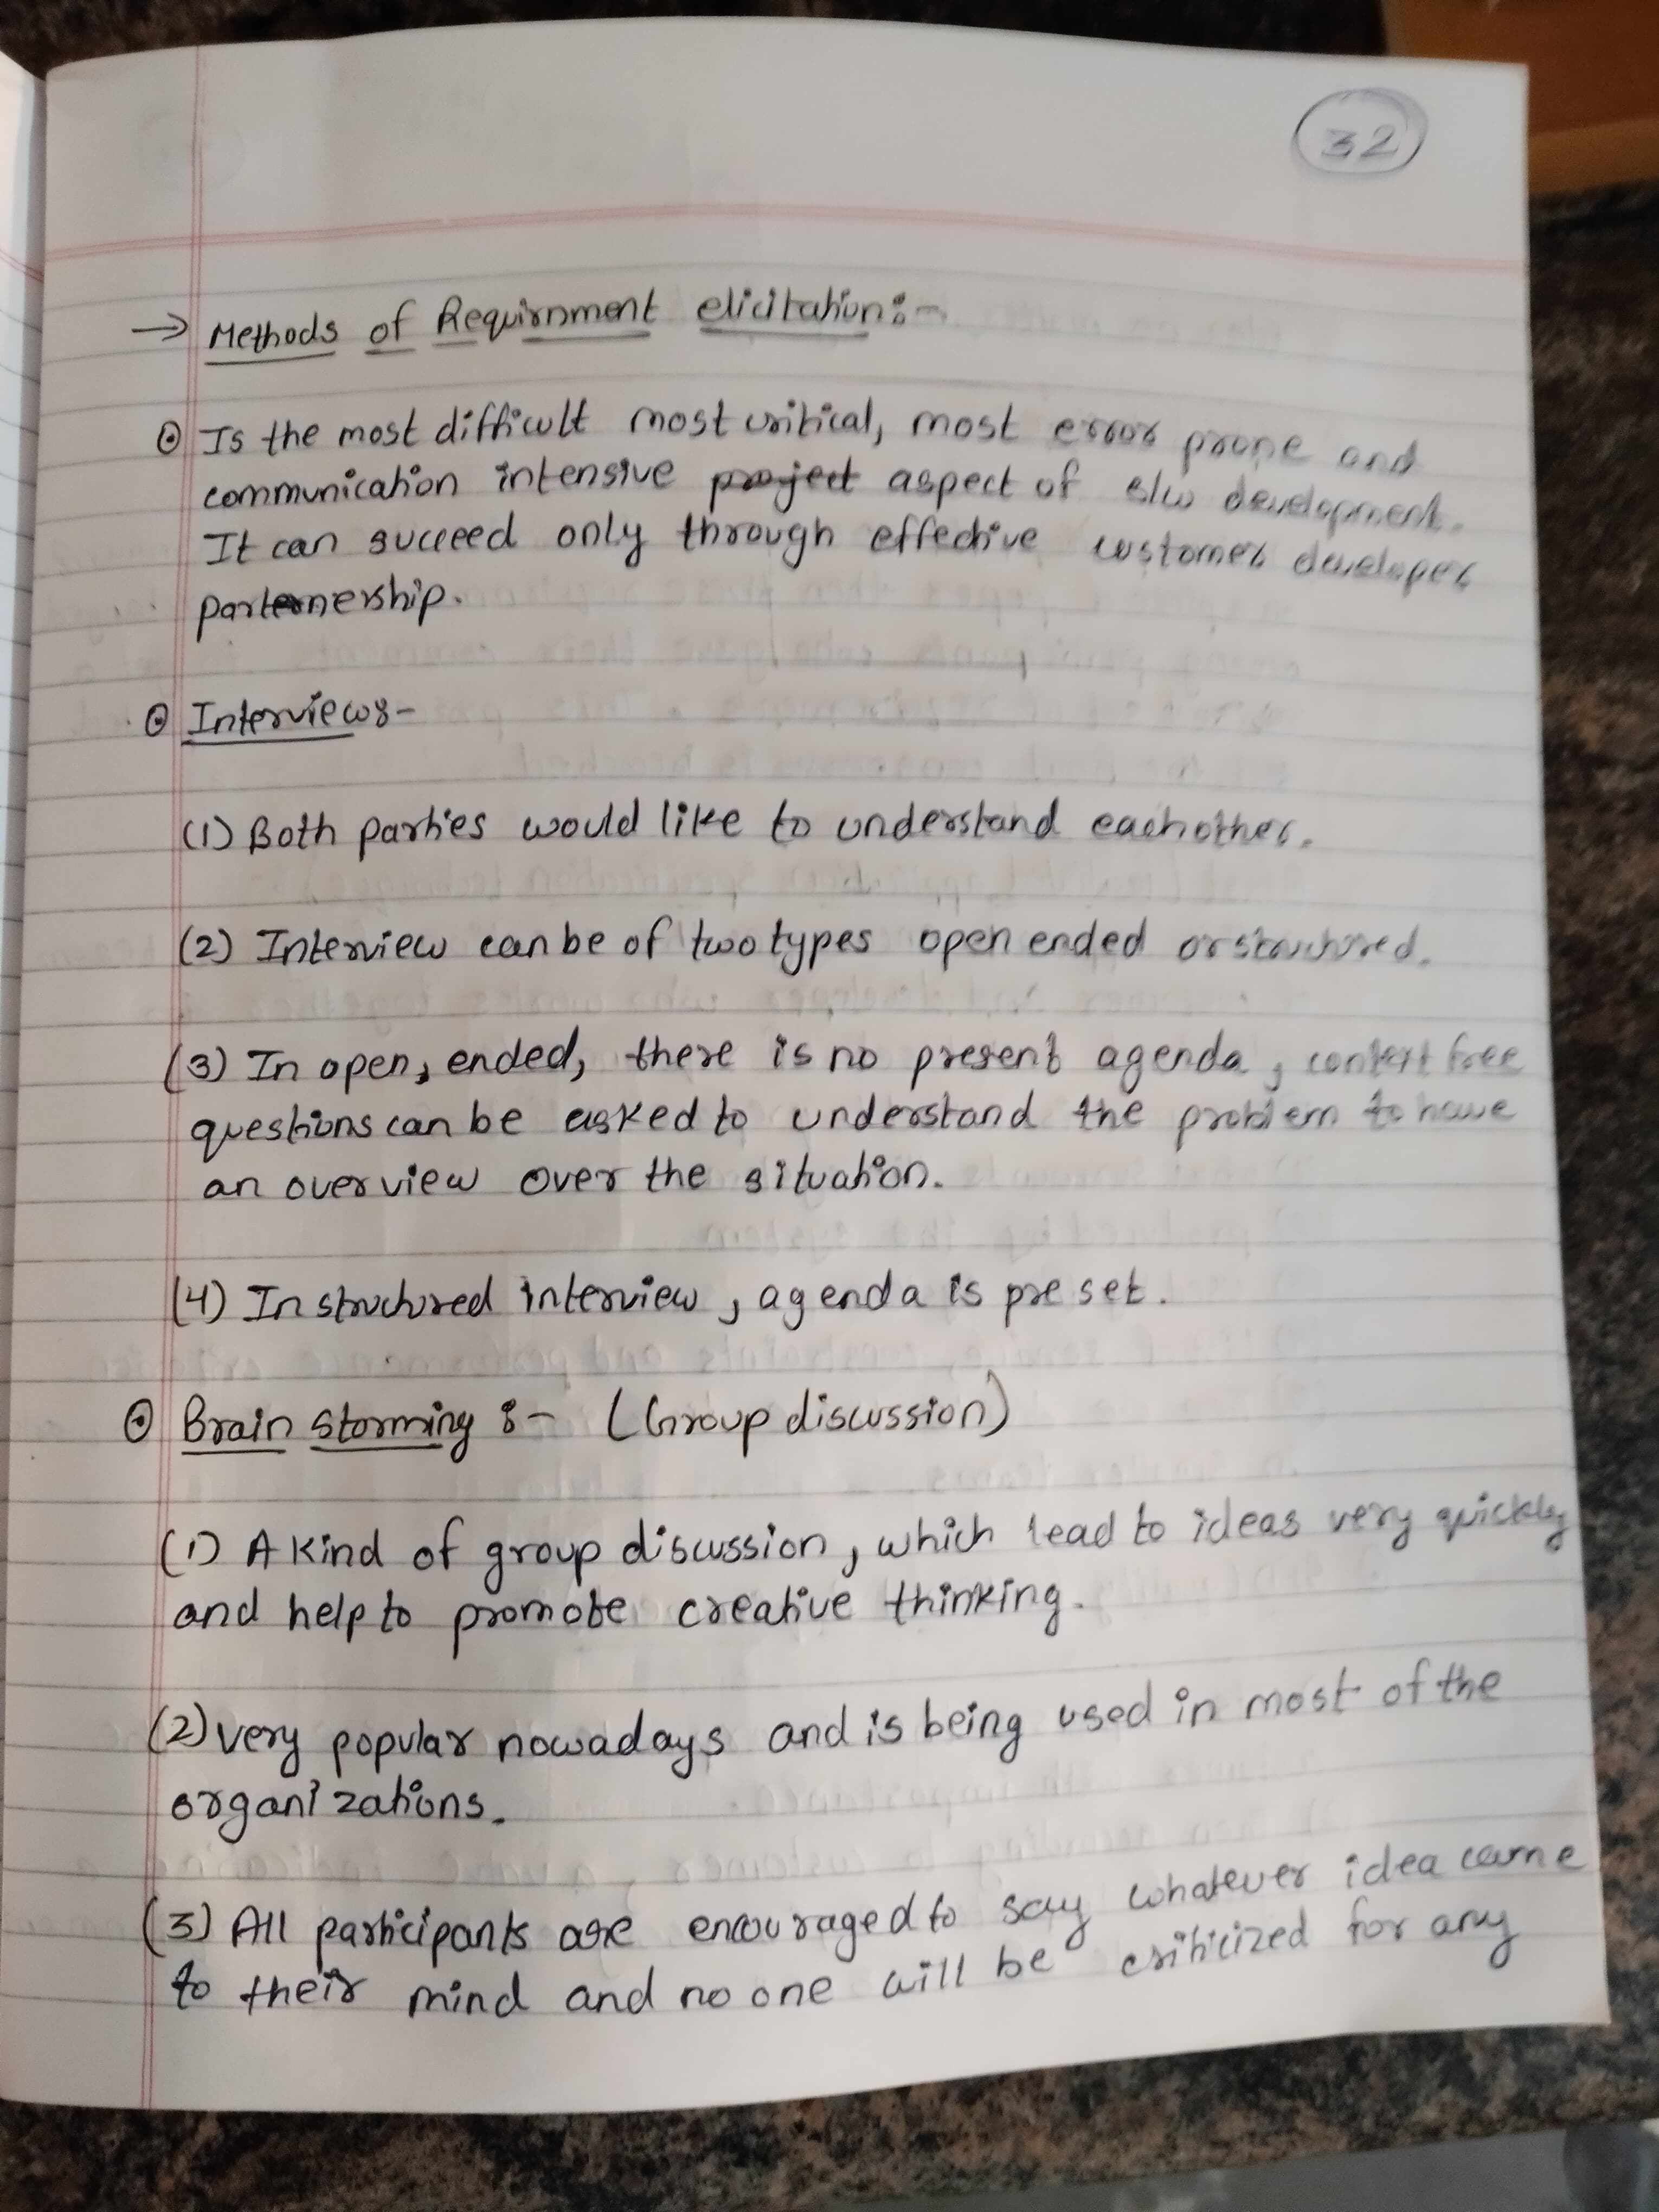 32
→ Methods of Requirnment elicitation:-
⊙ Is the most difficult most critical, most error prone and
communication intensive project aspect of s/w development.
It can succeed only through effective customer developer
parternership.
⊙ Interview:-
(1) Both parties would like to understand eachother.
(2) Interview can be of two types open ended or structured.
(3) In open, ended, there is no present agenda, context free
questions can be asked to understand the problem to have
an overview over the situation.
(4) In structured interview, agenda is pre set.
⊙ Brain storming :- (Group discussion)
(1) A kind of group discussion, which lead to ideas very quickly
and help to promote creative thinking.
(2) very popular nowadays and is being used in most of the
organizations.
(3) All participants are encouraged to say whatever idea came
to their mind and no one will be criticized for any